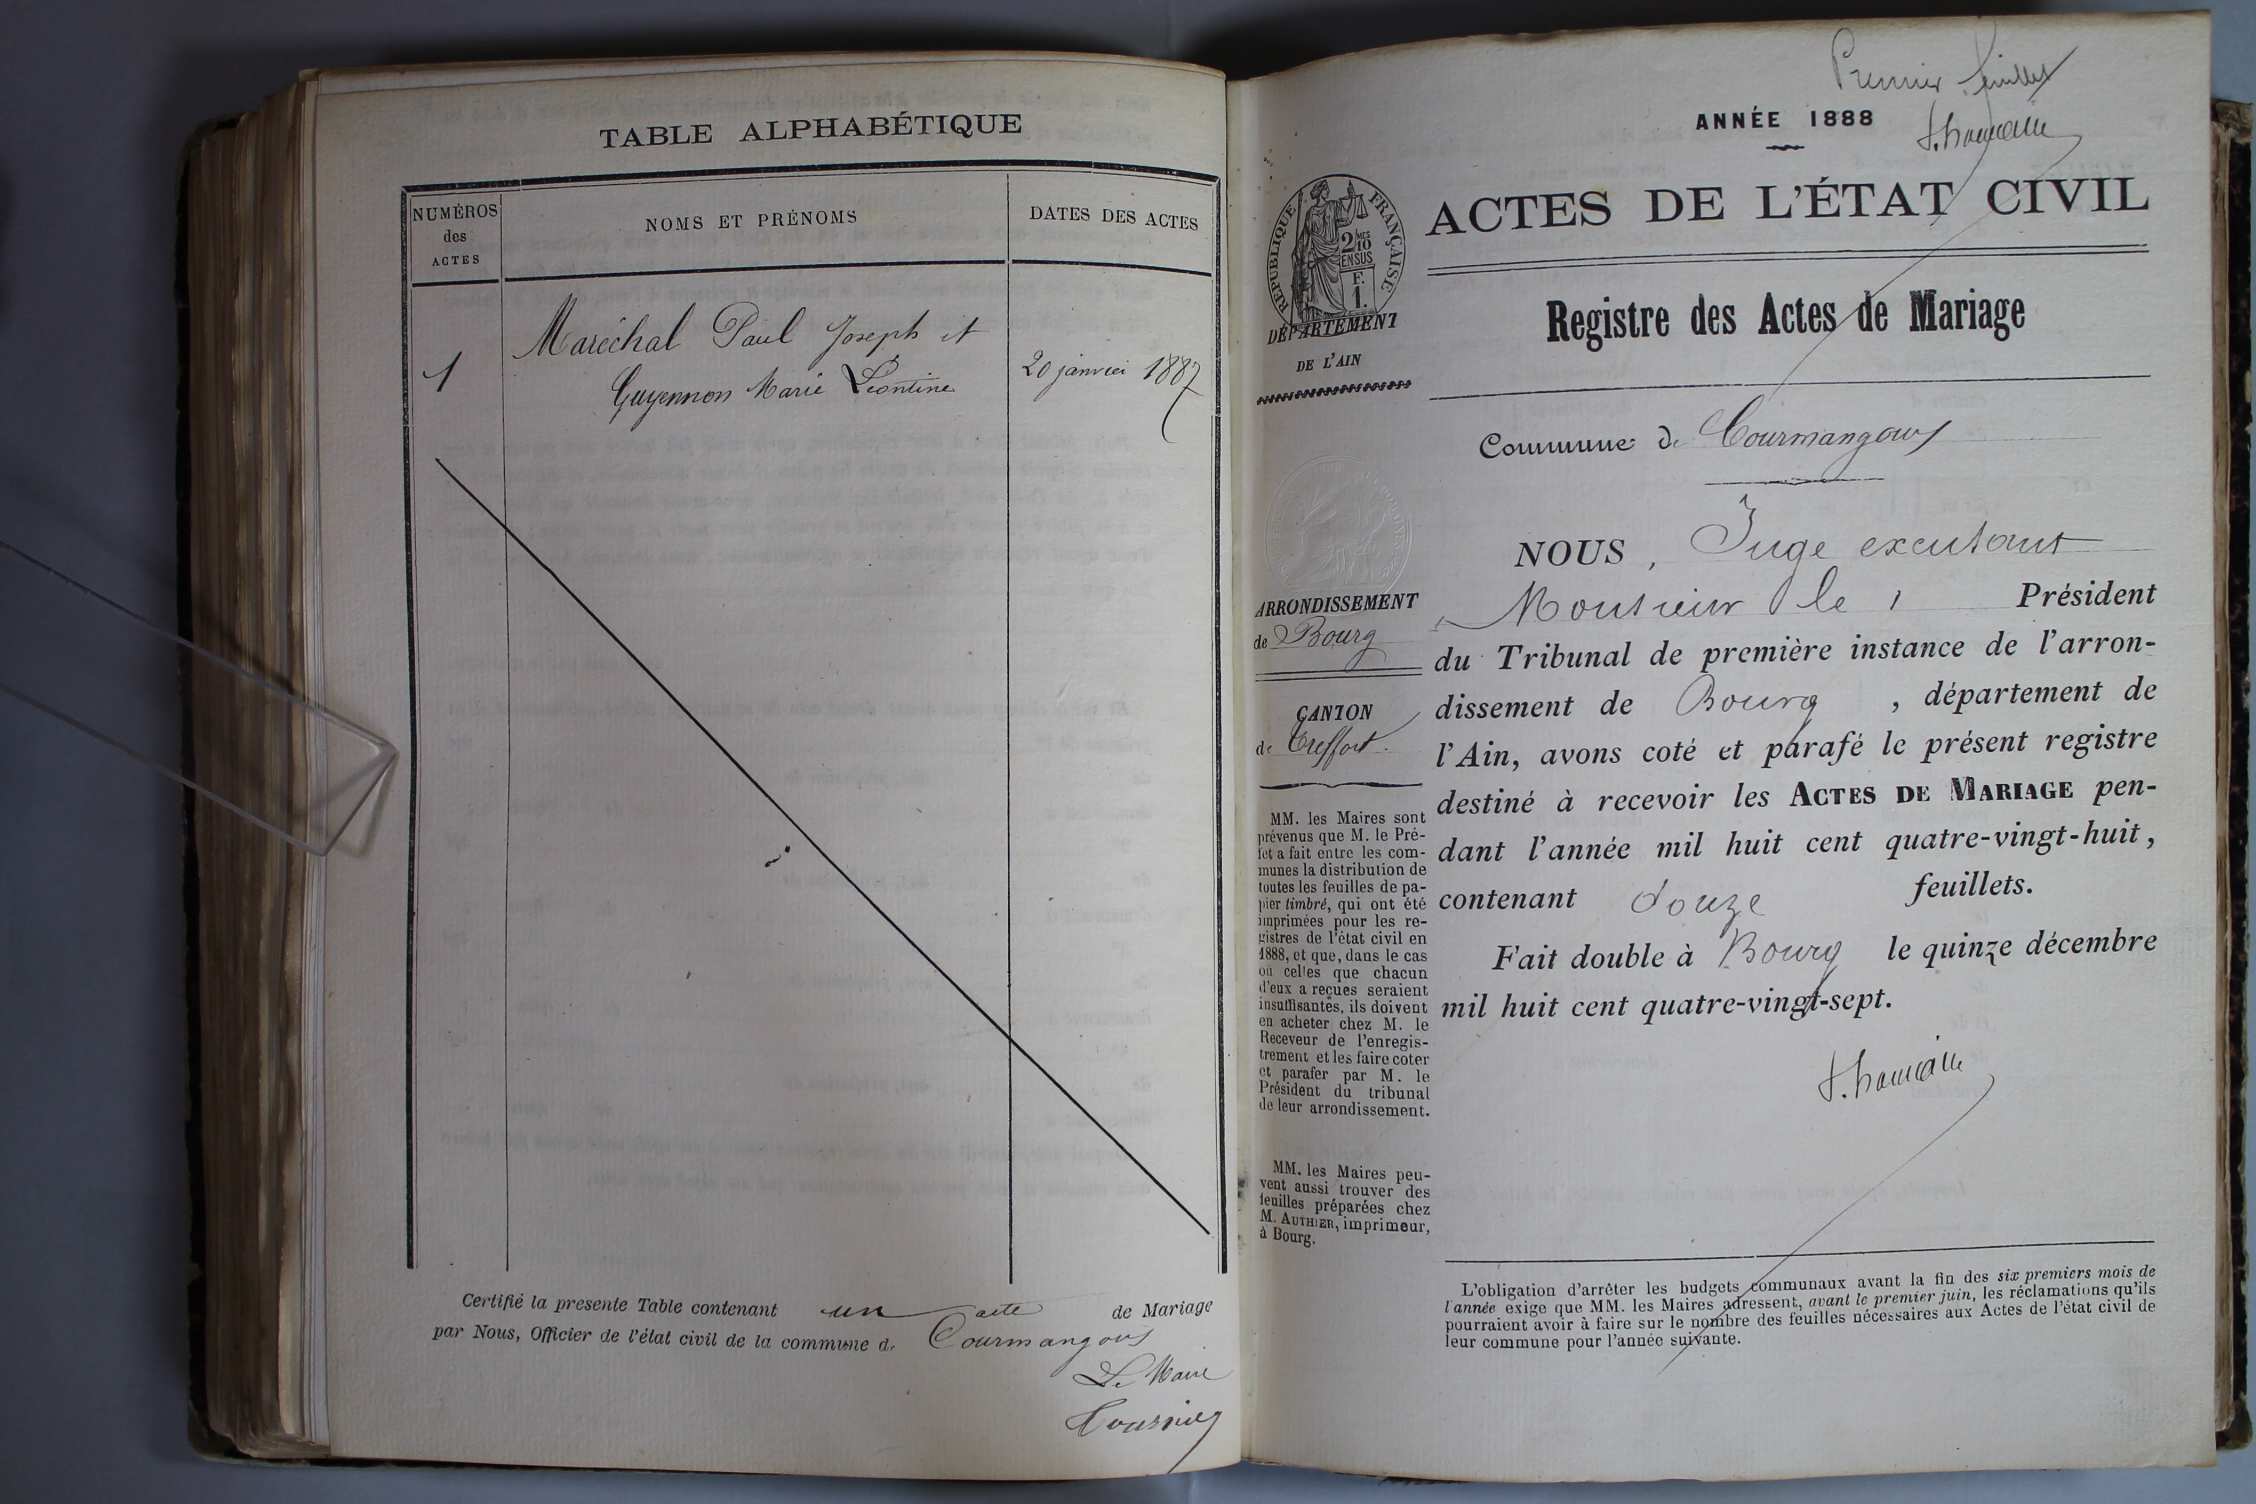 TABLE ALPHABÉTIQUE
NUMÉROS
des
ACTES
NOMS ET PRÉNOMS
DATES DES ACTES
1
Maréchal Paul Joseph et
Guyennon Marie Léontine
20 janvier 1887
Certifié la presente Table contenant un acte de Mariage
par Nous, Officier de l'état civil de la commune de Courmangoux
Le Maire
Premier feuillet
ANNÉE 1888
ACTES DE L'ÉTAT CIVIL
RÉPUBLIQUE FRANÇAISE
2/10 MES
EN SUS
F.
1.
DÉPARTEMENT
DE L'AIN
Registre des Actes de Mariage
Commune de Courmangoux
ARRONDISSEMENT
de Bourg
CANTON
de Treffort.
MM. les Maires sont
prévenus que M. le Pré-
fet a fait entre les com-
munes la distribution de
toutes les feuilles de pa-
pier timbré, qui ont été
imprimées pour les re-
gistres de l'état civil en
1888, et que, dans le cas
où celles que chacun
d'eux a reçues seraient
insuffisantes, ils doivent
en acheter chez M. le
Receveur de l'enregis-
trement et les faire coter
et parafer par M. le
Président du tribunal
de leur arrondissement.
MM. les Maires peu-
vent aussi trouver des
feuilles préparées chez
M. AUTHIER, imprimeur,
à Bourg.
NOUS, Juge excusant
Monsieur le Président
du Tribunal de première instance de l'arron-
dissement de Bourg, département de
l'Ain, avons coté et parafé le présent registre
destiné à recevoir les ACTES DE MARIAGE pen-
dant l'année mil huit cent quatre-vingt-huit,
contenant douze feuillets.
Fait double à Bourg le quinze décembre
mil huit cent quatre-vingt-sept.
L'obligation d'arrêter les budgets communaux avant la fin des six premiers mois de
l'année exige que MM. les Maires adressent, avant le premier juin, les réclamations qu'ils
pourraient avoir à faire sur le nombre des feuilles nécessaires aux Actes de l'état civil de
leur commune pour l'année suivante.